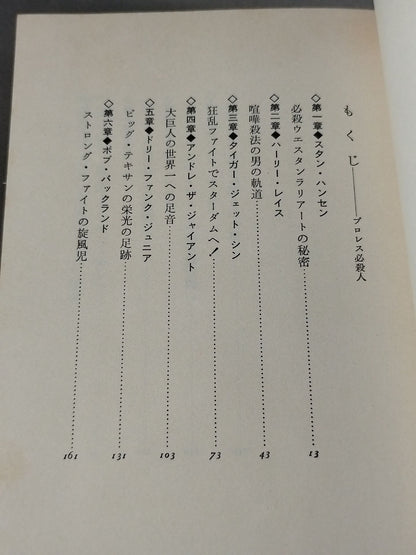 もくじ――プロレス必殺人
◇第一章◆スタン・ハンセン
必殺ウエスタンラリアートの秘密……………………13
◇第二章◆ハーリー・レイス
喧嘩殺法の男の軌道……………………43
◇第三章◆タイガー・ジェット・シン
狂乱ファイトでスターダムへ！……………………73
◇第四章◆アンドレ・ザ・ジャイアント
大巨人の世界一への足音……………………103
◇五章◆ドリー・ファンク・ジュニア
ビッグ・テキサンの栄光の足跡……………………131
◇第六章◆ボブ・バックランド
ストロング・ファイトの旋風児……………………161